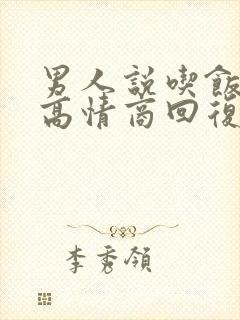 男人說喫飯
高情商回復
李秀領